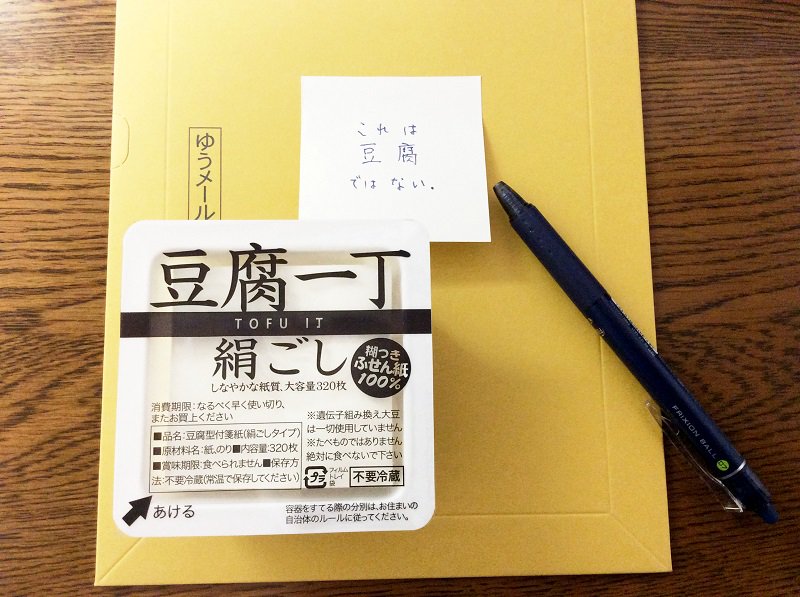 これは
豆腐
ではない.
ゆうメール
豆腐一丁
TOFU IT
絹ごし
しなやかな紙質、大容量320枚
糊つき
ふせん紙
100%
消費期限:なるべく早く使い切り、
またお買上ください
■品名:豆腐型付箋紙(絹ごしタイプ)
■原材料名:紙、のり■内容量:320枚
■賞味期限:食べられません■保存方
法:不要冷蔵(常温で保存してください)
※遺伝子組み換え大豆
は一切使用していません
※たべものではありません
絶対に食べないで下さい
プラ
フィルム
トレイ
袋
不要冷蔵
あける
容器をすてる際の分別は、お住まいの
自治体のルールに従ってください。
FRIXION BALL